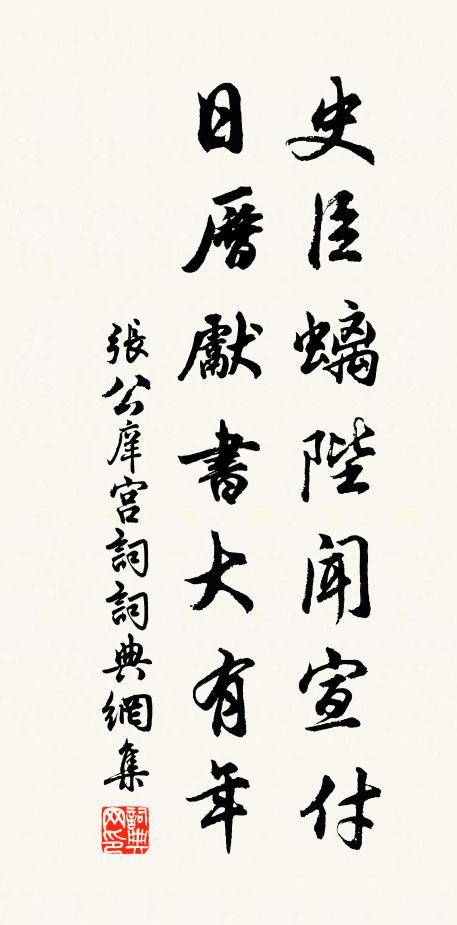 史臣螭陛聞宣付
日曆獻書大有年
張公庠宮詞詞典網集
詞典网印